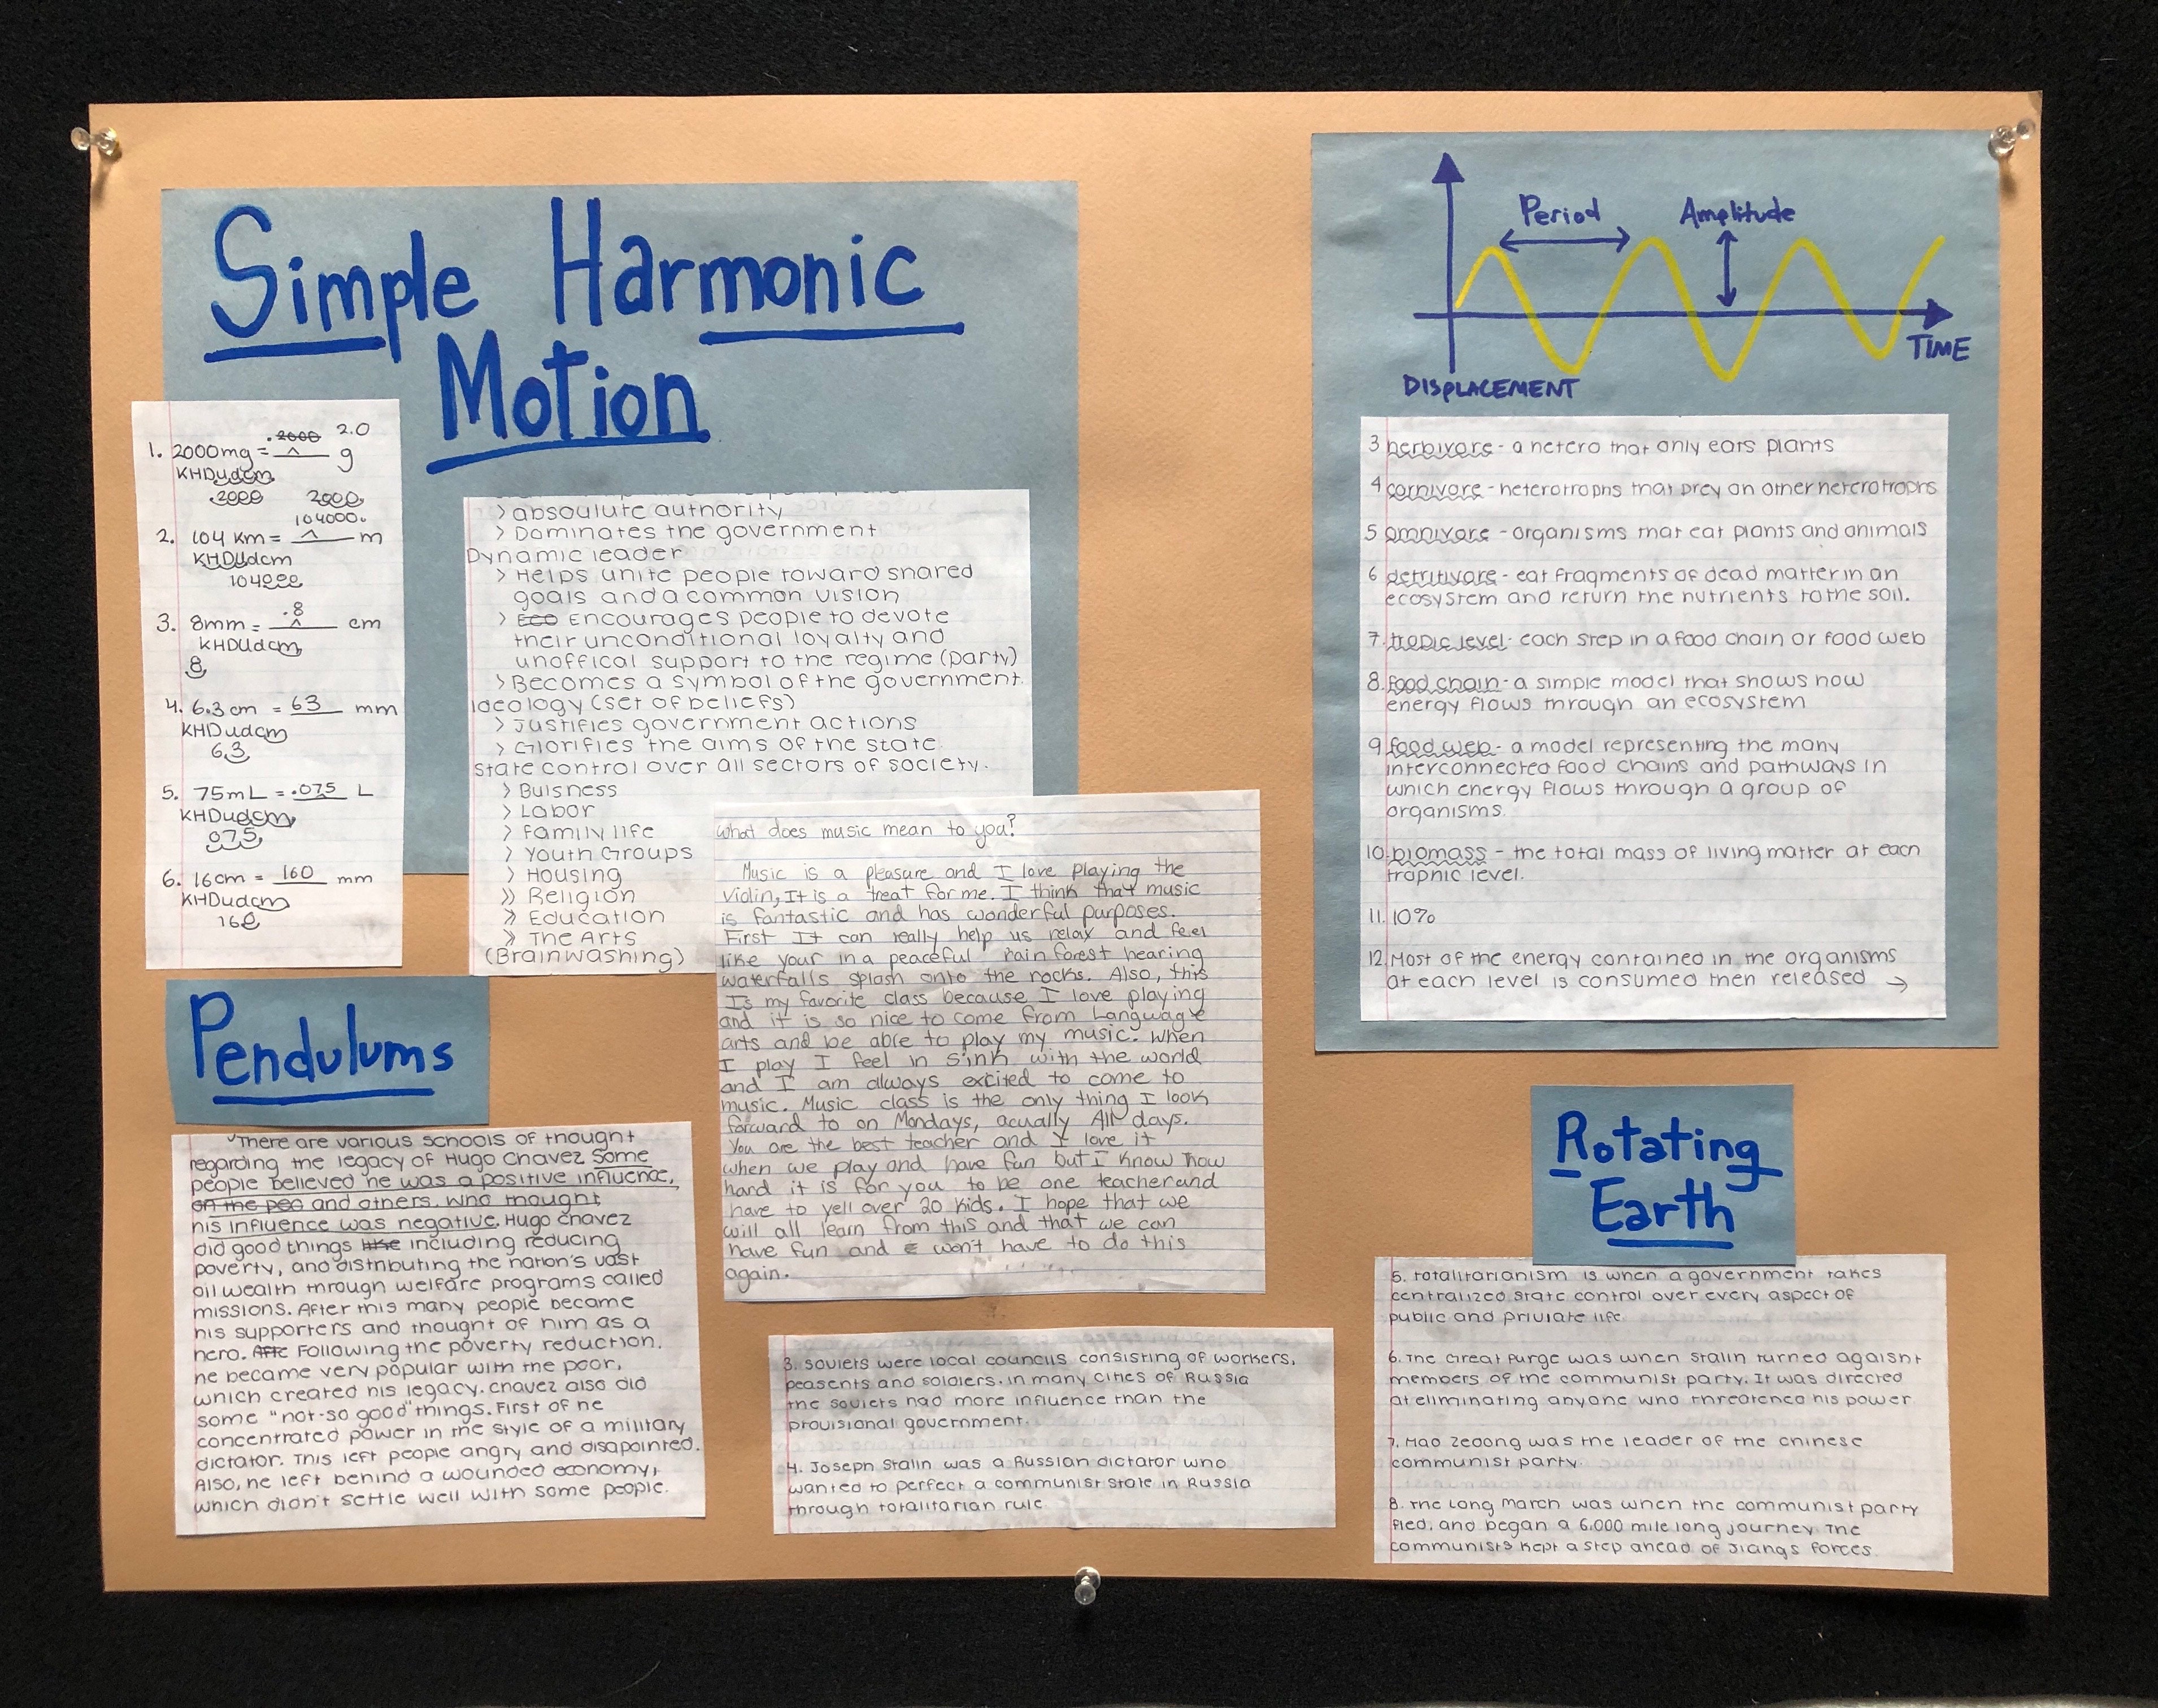 Simple Harmonic
Motion
1. 2000mg = .2000 2.0 g
KHDudcm
.2000 2000
104000.
2. 104 Km = m
KHDudcm
104000
3. 8mm = .8 cm
KHDudcm
8
4. 6.3cm = 63 mm
KHDudcm
6.3
5. 75mL = .075 L
KHDudcm
075
6. 16cm = 160 mm
KHDudcm
160
> absoulute authority
> Dominates the government
Dynamic leader
> Helps unite people toward shared
goals and a common vision
> Eco Encourages people to devote
their unconditional loyalty and
unoffical support to the regime (party)
> Becomes a symbol of the government.
Ideology (set of beliefs)
> Justifies government actions
> Glorifies the aims of the state
State control over all sectors of society.
> Buisness
> Labor
> Family life
> Youth Groups
> Housing
>> Religion
>> Education
>> The Arts
(Brainwashing)
What does music mean to you?
Music is a pleasure and I love playing the
violin, It is a treat for me. I think that music
is fantastic and has wonderful purposes.
First It can really help us relax and feel
like your in a peaceful rain forest hearing
waterfalls splash onto the rocks. Also, this
Is my favorite class because I love playing
and it is so nice to come from Language
arts and be able to play my music. When
I play I feel in sink with the world
and I am always excited to come to
music. Music class is the only thing I look
forward to on Mondays, acually All days.
You are the best teacher and I love it
when we play and have fun but I know how
hard it is for you to be one teacher and
have to yell over 20 kids. I hope that we
will all learn from this and that we can
have fun and won't have to do this
again.
Pendulums
There are various schools of thought
regarding the legacy of Hugo Chavez Some
people believed he was a positive influence,
on the peo and others. who thought
his influence was negative. Hugo Chavez
did good things like including reducing
poverty, and distributing the nation's vast
oil wealth through welfare programs called
missions. After this many people became
his supporters and thought of him as a
hero. Afte Following the poverty reduction,
he became very popular with the poor,
which created his legacy. Chavez also did
some "not-so good" things. First of he
concentrated power in the style of a military
dictator. This left people angry and disapointed.
Also, he left behind a wounded economy,
which didn't settle well with some people.
3. Soviets were local councils consisting of workers,
peasents and soldiers. In many cities of Russia
the soviets had more influence than the
provisional government.
4. Joseph Stalin was a Russian dictator who
wanted to perfect a communist state in Russia
through totalitarian rule
Period Amplitude
TIME
DISPLACEMENT
3 herbivore - a hetero that only eats plants
4 carnivore - heterotrophs that prey on other heterotrophs
5 omnivore - organisms that eat plants and animals
6 detritivore - eat fragments of dead matter in an
ecosystem and return the nutrients to the soil.
7. tropic level - each step in a food chain or food web
8. food chain - a simple model that shows how
energy flows through an ecosystem
9 food web - a model representing the many
interconnected food chains and pathways in
which energy flows through a group of
organisms.
10. biomass - the total mass of living matter at each
trophic level.
11. 10%
12. Most of the energy contained in the organisms
at each level is consumed then released →
Rotating
Earth
5. Totalitarianism is when a government takes
centralized state control over every aspect of
public and private life.
6. The Great Purge was when Stalin turned agaisnt
members of the communist party. It was directed
at eliminating anyone who threatened his power
7. Mao Zedong was the leader of the chinese
communist party.
8. The Long March was when the communist party
fled, and began a 6,000 mile long journey. The
communists kept a step ahead of Jiangs forces.